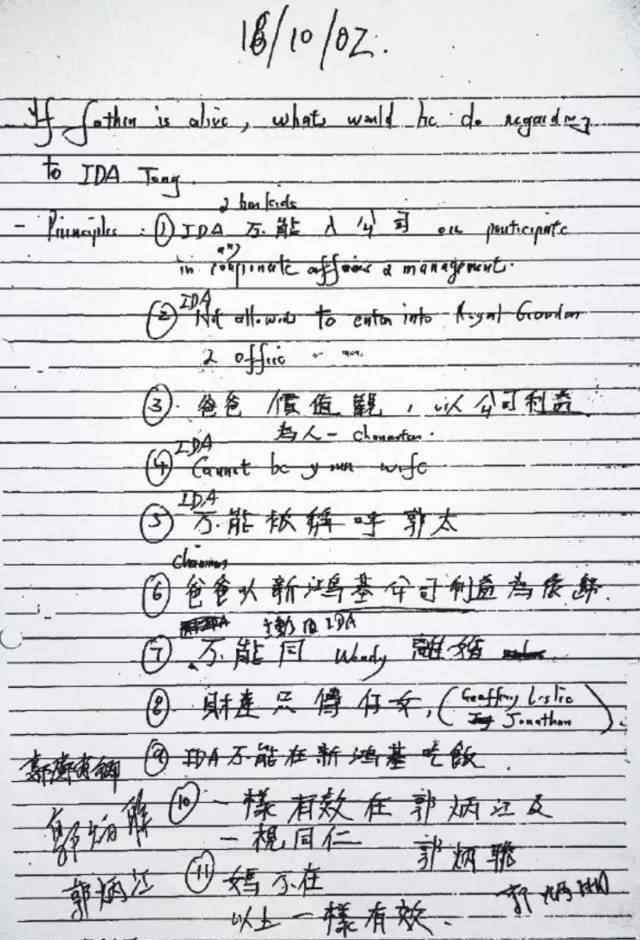 18/10/02.
If father is alive, what would he do regarding
to IDA Tong.
2 her kids
- Principles : ① IDA 不能入公司 or participate
any
in corporate affairs & management.
IDA
② Not allowed to enter into Royal Garden
& office
③ 爸爸 價值觀, 以公司利益
為人 - character.
IDA
④ Cannot be your wife
IDA
⑤ 不能被稱呼郭太
⑥ 爸爸以新鴻基公司利益為依歸.
IDA
⑦ 不能同 Wendy 離婚
⑧ 財產只傳仔女, (Geoffrey Leslie
Jonathan)
⑨ IDA不能在新鴻基吃飯
⑩ 一樣有效在郭炳江及
一視同仁 郭炳聯
郭炳聯
郭炳江
⑪ 媽不在
以上一樣有效.